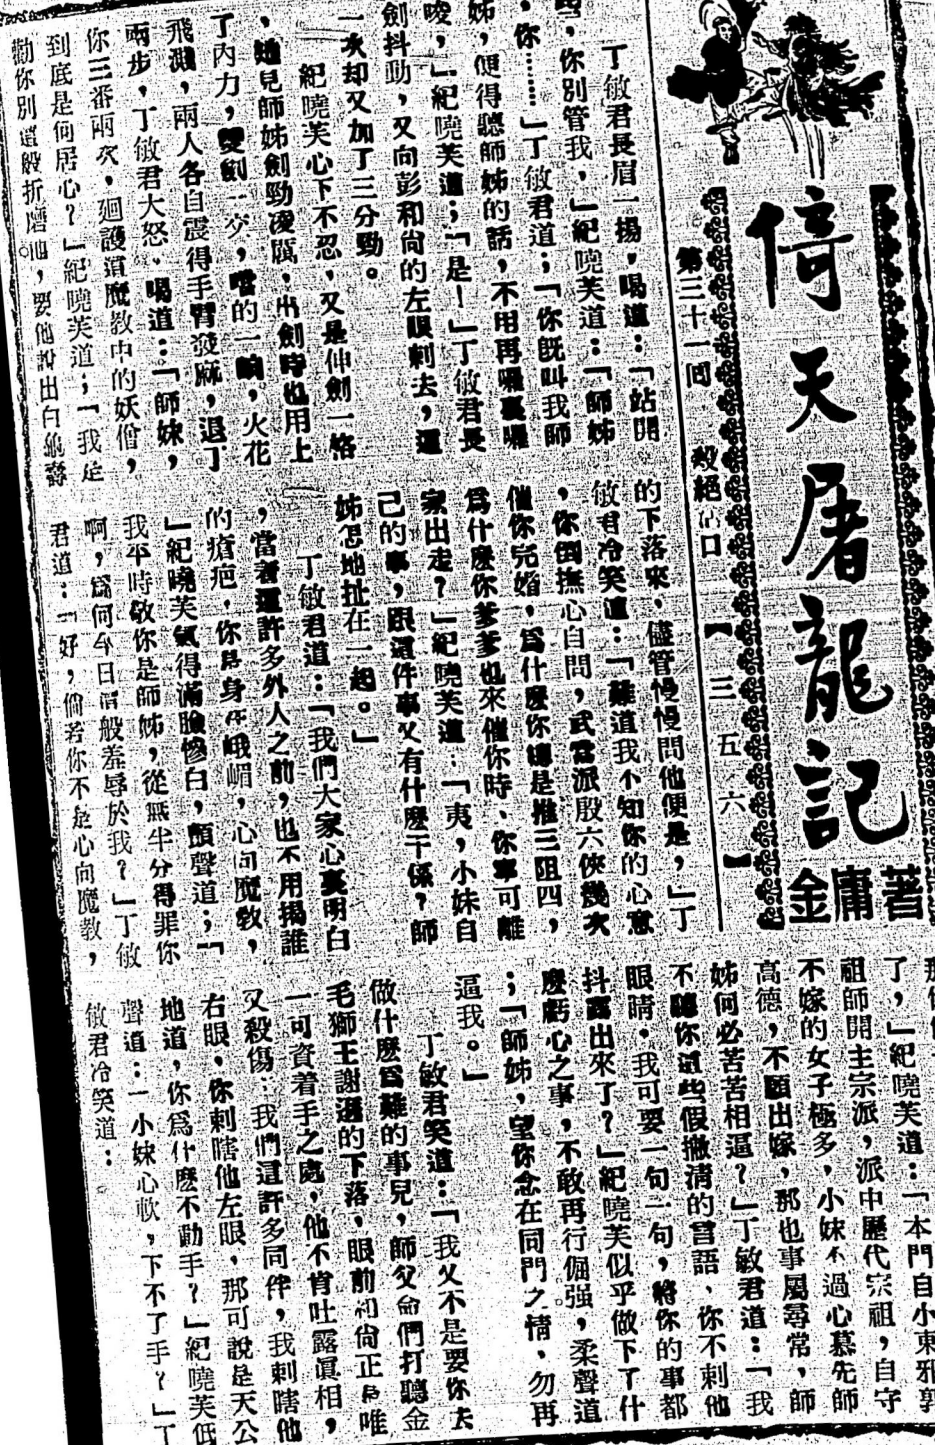 倚天屠龍記
金庸著
第三十一回 殺絕 口 【三五六】
丁敏君長眉一揚，喝道：「站開
，你別管我，」紀曉芙道：「師姊
，你……」丁敏君道；「你既叫我師
姊，便得聽師姊的話，不用再囉裏囉
唆，」紀曉芙道；「是！」丁敏君長
劍抖動，又向彭和尚的左眼刺去，這
一次却又加了三分勁。
紀曉芙心下不忍，又是伸劍一格
，她見師姊劍勁凌厲，出劍時也用上
了內力，雙劍一交，噹的一响，火花
飛濺，兩人各自震得手臂發麻，退了
兩步，丁敏君大怒、喝道：「師妹，
你三番兩次，廻護這魔教中的妖僧，
到底是何居心？」紀曉芙道；「我是
勸你別這般折磨他，要他說出白龜壽
的下落來，儘管慢慢問他便是，」丁
敏君冷笑道：「難道我不知你的心意
，你倒撫心自問，武當派殷六俠幾次
催你完婚，爲什麼你總是推三阻四，
爲什麼你爹爹也來催你時、你寧可離
家出走？」紀曉芙道：「夷，小妹自
己的事，跟這件事又有什麼干係？師
姊怎地扯在一起。」
丁敏君道：「我們大家心裏明白
，當着這許多外人之前，也不用揭誰
的瘡疤，你是身在峨嵋，心向魔敎，
」紀曉芙氣得滿臉慘白，顫聲道；「
我平時敬你是師姊，從無半分得罪你
啊，爲何今日這般羞辱於我？」丁敏
君道：「好，倘若你不是心向魔教，
了，」紀曉芙道：「本門自小東邪郭
祖師開主宗派，派中歷代宗祖，自守
不嫁的女子極多，小妹不過心慕先師
高德，不願出嫁，那也事屬尋常，師
姊何必苦苦相逼？」丁敏君道：「我
不聽你這些假撇清的言語、你不刺他
眼睛，我可要一句一句，將你的事都
抖露出來了？」紀曉芙似乎做下了什
麼虧心之事，不敢再行倔强，柔聲道
；「師姊，望你念在同門之情，勿再
逼我。」
丁敏君笑道：「我又不是要你去
做什麼爲難的事兒，師父命們打聽金
毛獅王謝遜的下落，眼前和尚正是唯
一可資着手之處，他不肯吐露眞相，
又殺傷：我們這許多同伴，我刺瞎他
右眼，你刺瞎他左眼，那可說是天公
地道，你爲什麼不動手？」紀曉芙低
聲道：「小妹心軟，下不了手？」丁
敏君冷笑道：